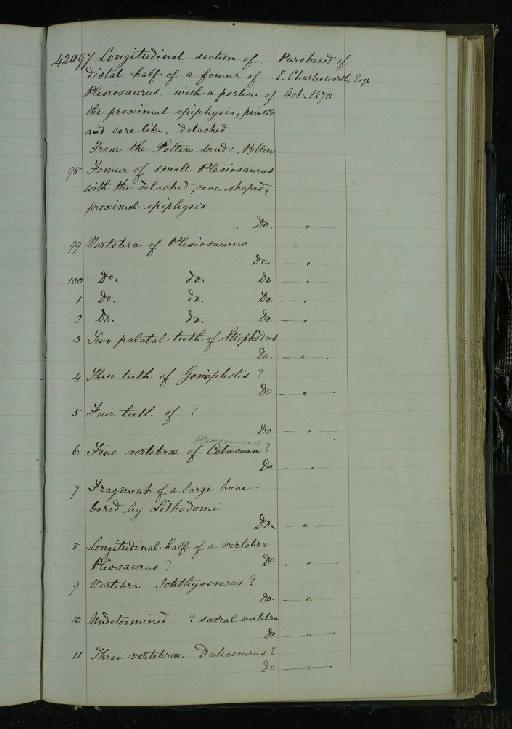 42097 Longitudinal section of Purchased of
distal half of a femur of E. Charlesworth, Esqr
Plesiosaurus, with a portion of Oct. 1870
the proximal epiphysis,
and core like, detached
From the Potton sands, Potton
98 Femur of small Plesiosaurus
with the detached, cone-shaped,
proximal epiphysis
Do. — " —
99 Vertebra of Plesiosaurus
Do. — " —
100 Do. do. Do — " —
1 Do. do. Do. — " —
2 Do. do. Do. — " —
3 Two palatal teeth of Strophodus
Do. — " —
4 Three teeth of Goniopholis ?
Do — " —
5 Four teeth of ?
Do — " —
6 Five vertebrae of ?
Do — " —
7 Fragment of a large bone
bored by Lithodomi
Do. — " —
8 Longitudinal half of a vertebra
Pliosaurus ? Do — " —
9 Vertebra Ichthyosaurus ?
Do. — " —
10 Undetermined ? sacral vertebra
Do — " —
11 Three vertebrae. Dakosaurus ?
Do — " —